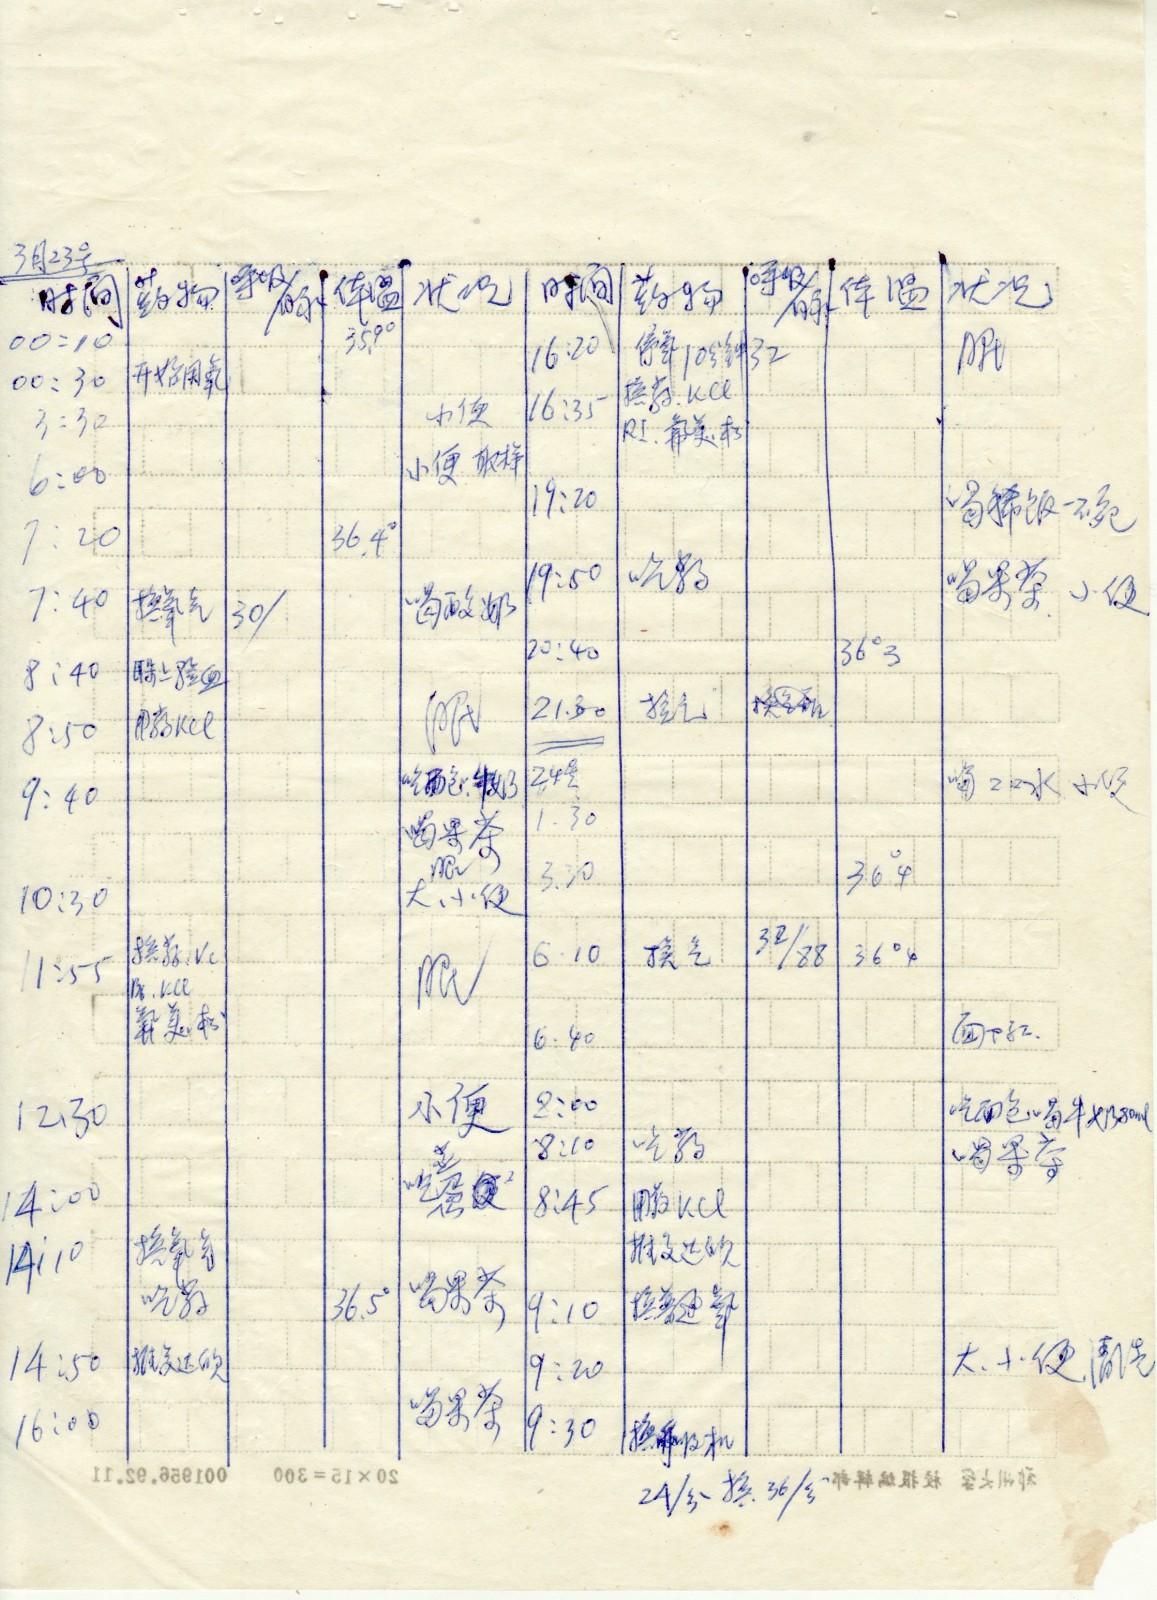 3月23号
时间 药物 呼吸/脉 体温 状况
00:10 35.9°
00:30 开始用氧
3:30 小便
6:00 小便取样
7:20 36.4°
7:40 换氧气 30/ 喝酸奶
8:40 验血
8:50 用药KCl 眠
9:40 吃面包、牛奶
喝果茶
眠
10:30 大、小便
11:55 换药 眠
KCl
氟美松
12:30 小便
14:00 吃蛋
14:10 换氧气
吃药 36.5° 喝果茶
14:50 推
16:00 喝果茶
时间 药物 呼吸/脉 体温 状况
16:20 停氧10分钟 32 眠
16:35 换药.KCl
RI.氟美松
19:20 喝稀饭一碗
19:50 吃药 喝果茶 小便
20:40 36°3
21.30 换气
24号
1.30 喝2口水 小便
3.30 36°4
6.10 换气 32/88 36°4
6.40 面
8:00 吃面包喝牛奶80ml
8:10 吃药 喝果茶
8:45 用药KCl
推
9:10 换
9:20 大、小便,清洗
9:30 换呼吸机
24/分换36/分
郑州大学 校报编辑部 20×15=300 001956.92.11